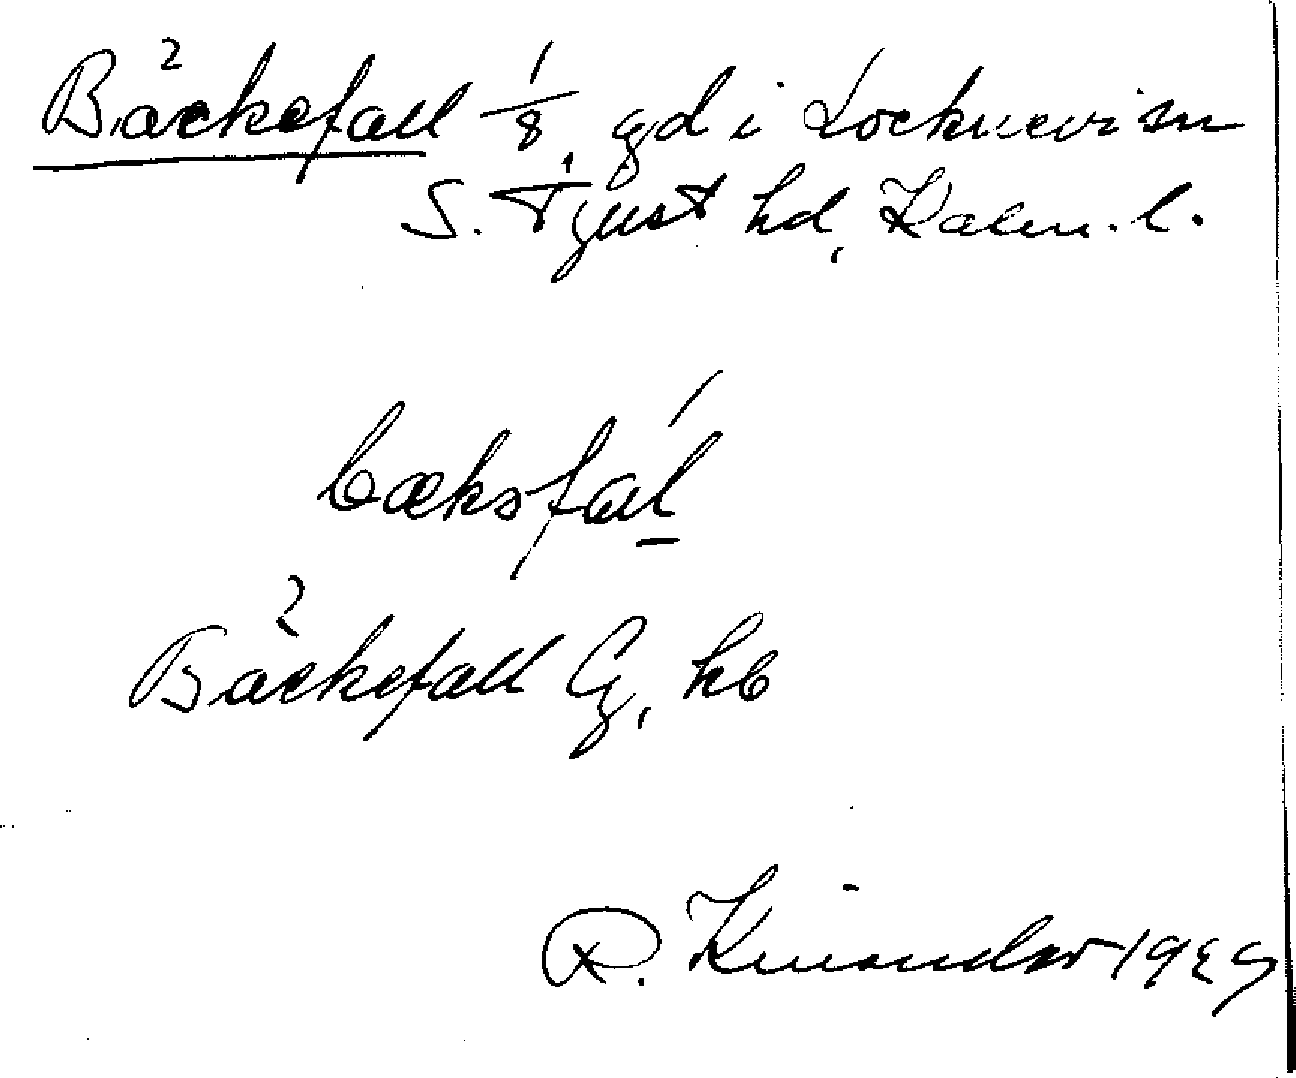 Bäckefall 1/8, gd i Locknevi sn
S. Tjust hd, Kalm. l.
bæksfal
Bäckefall G, hb
R. Kinander 1929